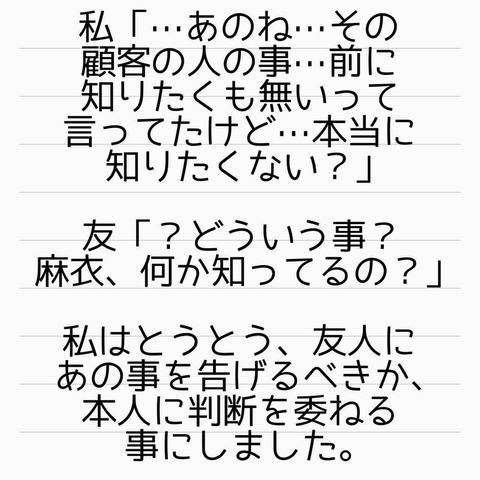 私「…あのね…その
顧客の人の事…前に
知りたくも無いって
言ってたけど…本当に
知りたくない？」
友「？どういう事？
麻衣、何か知ってるの？」
私はとうとう、友人に
あの事を告げるべきか、
本人に判断を委ねる
事にしました。